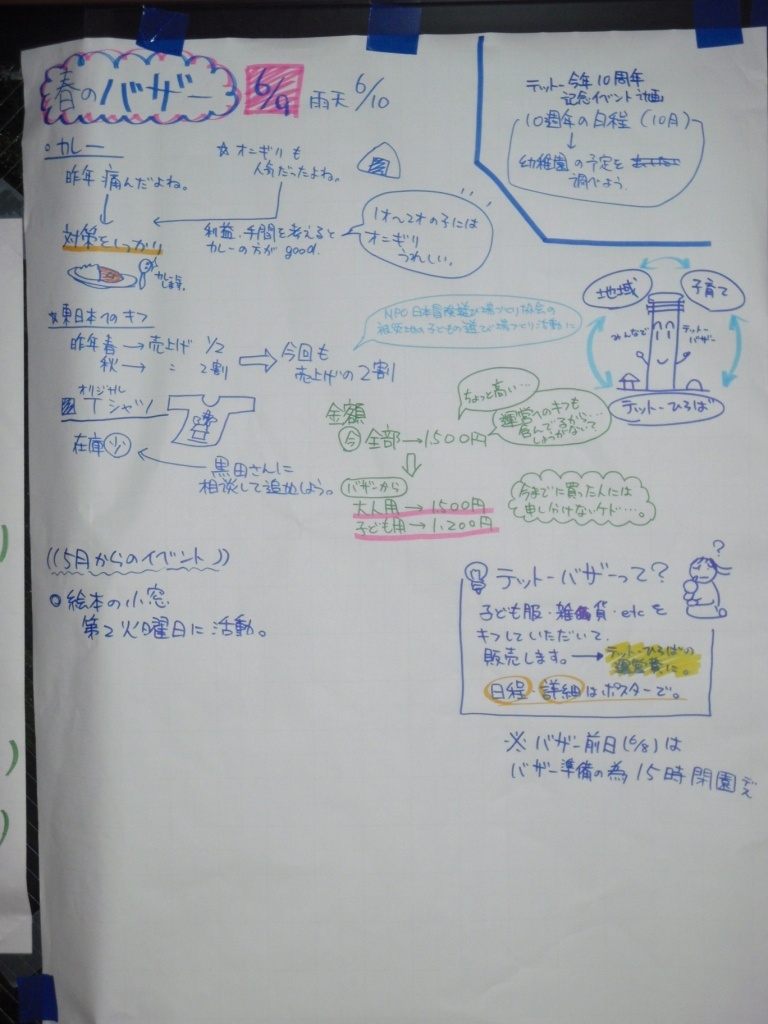 春のバザー 6/9 雨天 6/10
テットー今年10周年
記念イベント計画
10週年の日程 (10月)
↓
幼稚園の予定を
調べよう。
・カレー
昨年 痛んだよね。
↓
対策をしっかり
☆オニギリも
人気だったよね。
利益・手間を考えると
カレーの方が good.
1才〜2才の子には
オニギリ
うれしい。
地域
子育て
みんなで
テットー
バザー
テットーひろば
☆東日本へのキフ
昨年春→売上げ 1/2
秋→ 〃 2割
⇒ 今回も
売上げの2割
NPO日本冒険遊び場づくり協会の
被災地の子どもの遊び場づくり活動に
オリジナル
Tシャツ
在庫 少
黒田さんに
相談して追加しよう。
金額
今 全部→1500円
ちょっと高い…
運営へのキフも
含んでるから…
しょうがないて
バザーから
大人用→1500円
子ども用→1,200円
今までに買った人には
申し分けないケド…。
((5月からのイベント))
○絵本の小窓
第2火曜日に活動。
テットーバザーって?
?
子ども服・雑貨・etcを
キフしていただいて、
販売します。→テットーひろばの
運営費に。
日程・詳細はポスターで。
※バザー前日(6/8)は
バザー準備の為15時閉園デス